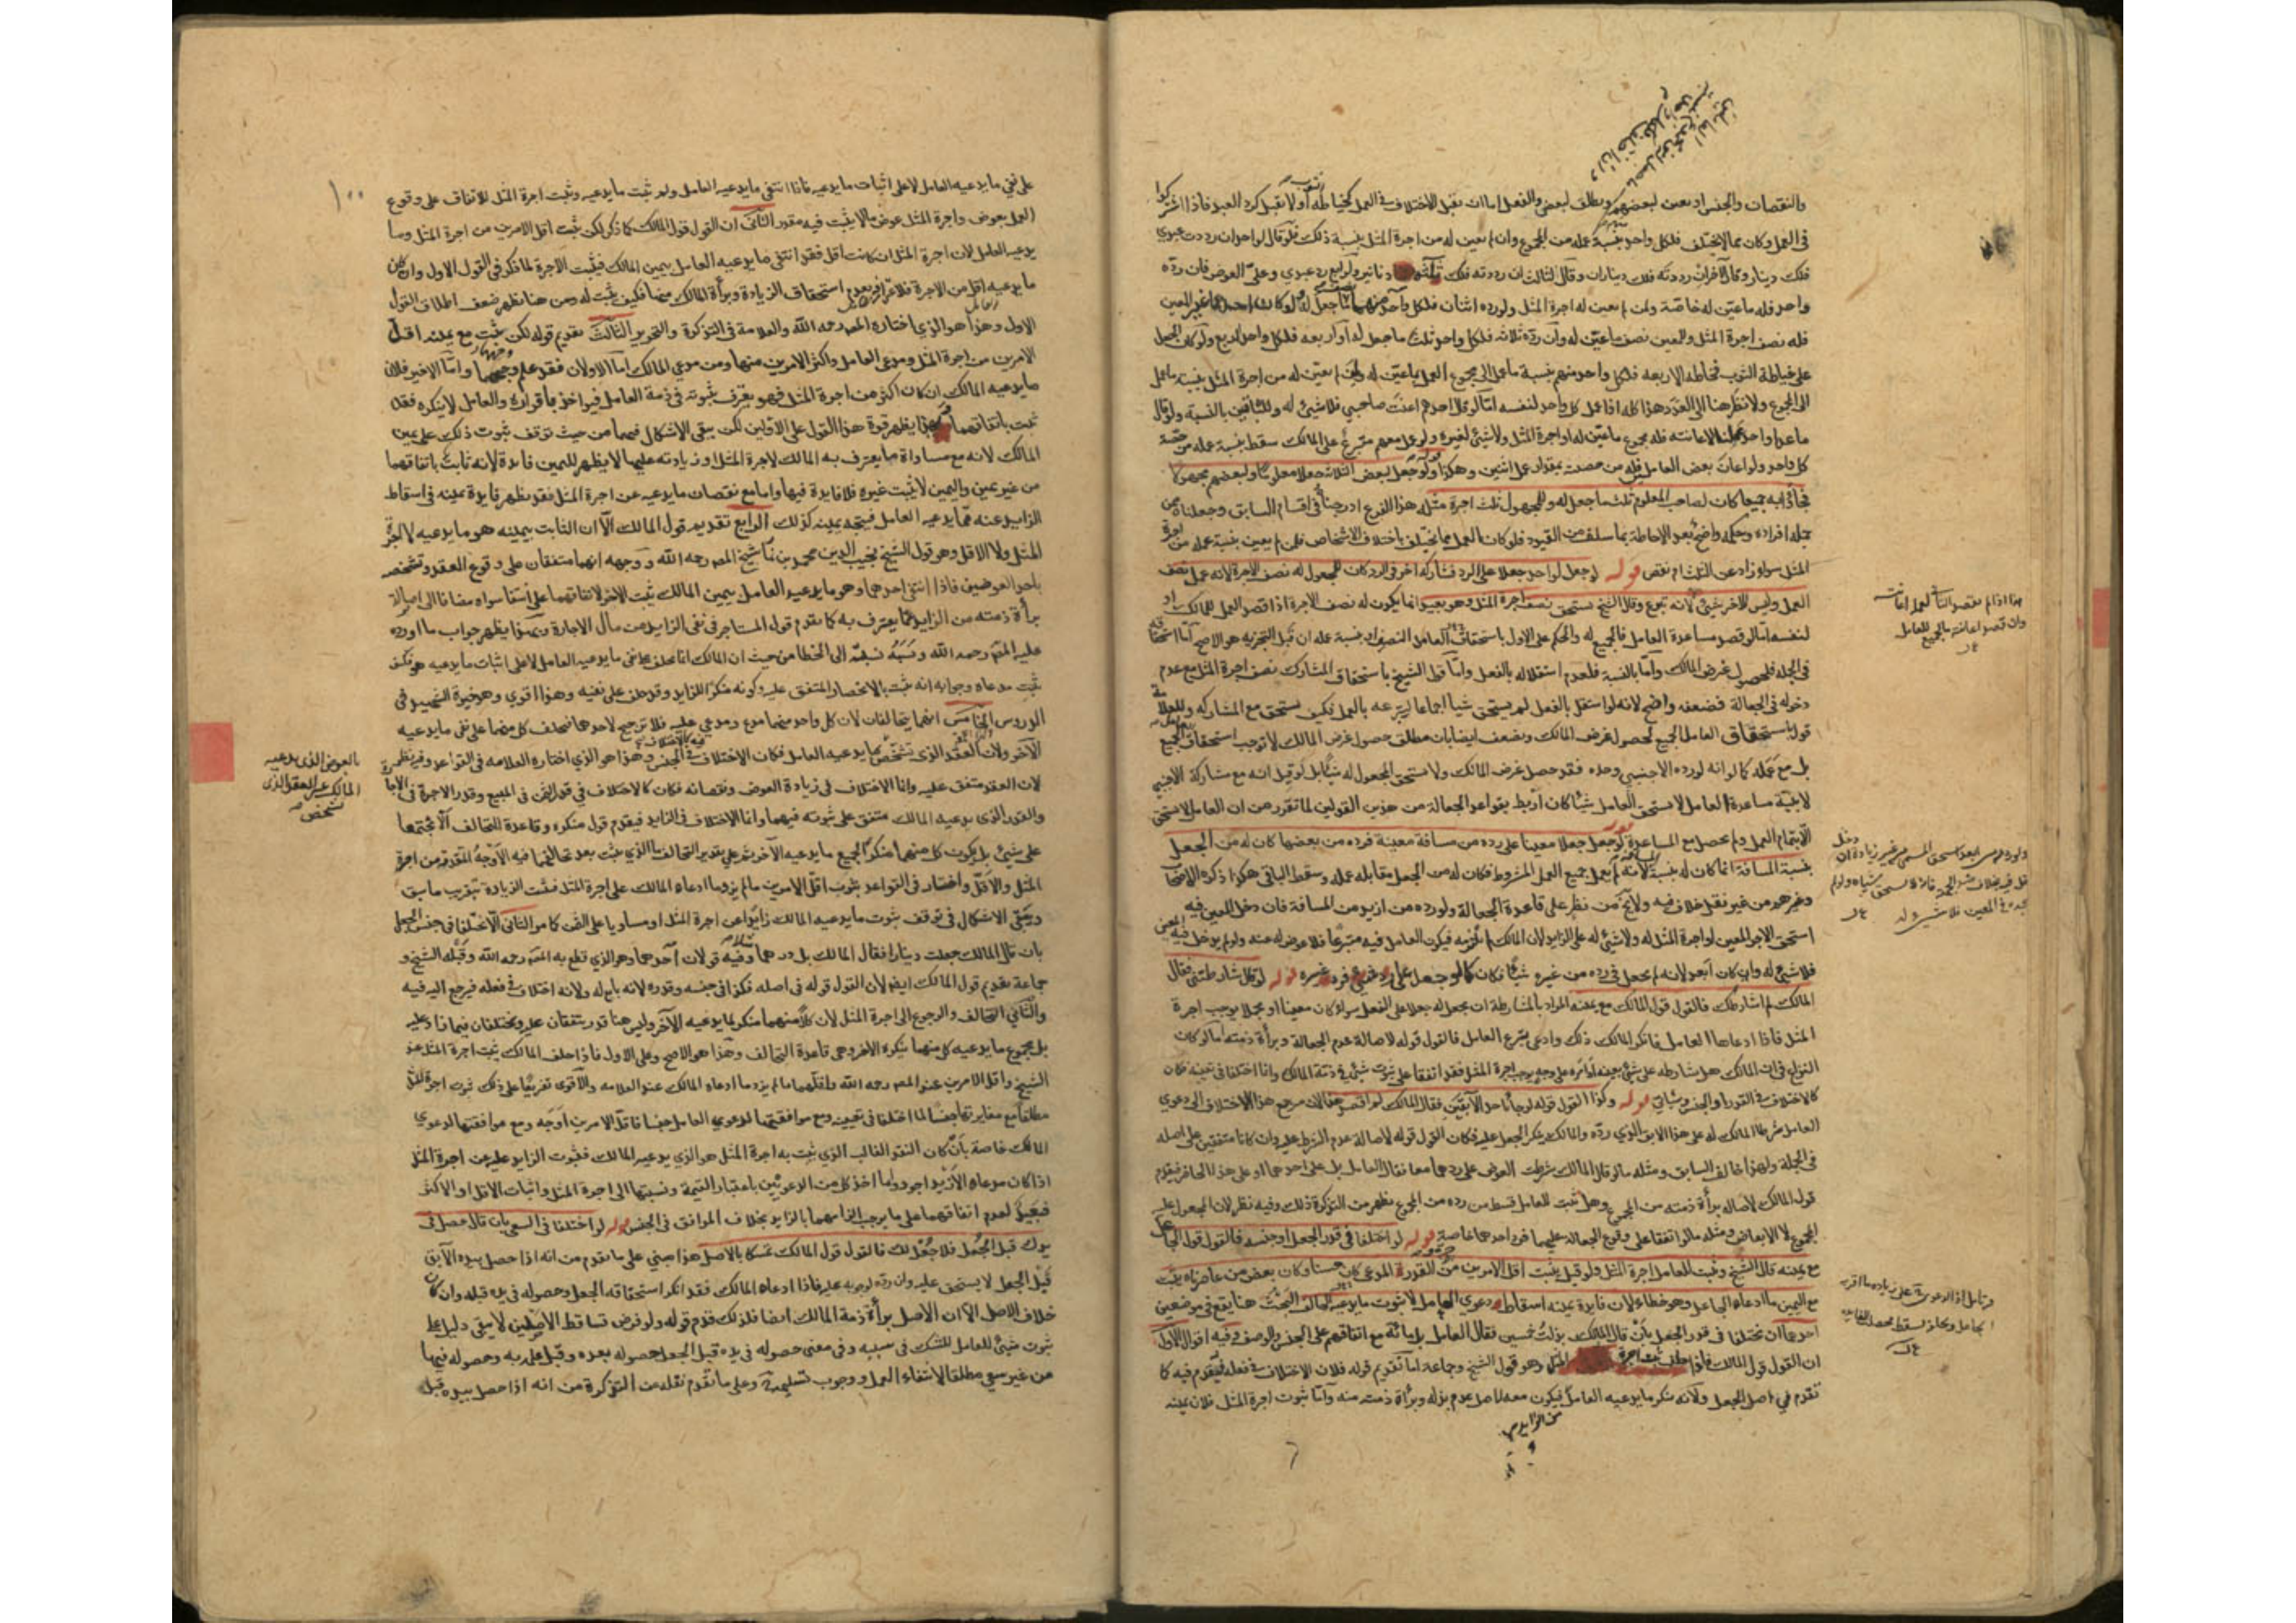 والنقصان والجنس او يعين لبعضهم ويطلق لبعض والفعل اما ان يقبل الاختلاف في العمل كخياطة الثوب او لا يقبل كرد العبد فاذا اشتركوا
في العمل وكان مما لا يختلف فلكل واحد بنسبة عمله من المجموع وان لم يعين له من اجرة المثل بنسبة ذلك فلو قال لواحد ان رددت عبدي
فلك دينار وقال لآخر ان رددته فلك ديناران وقال لثالث ان رددته فلك ثلثة دنانير ولرابع رد عبدي وعلي العوض فان رده
واحد فله ما عين له خاصة ولمن لم يعين له اجرة المثل ولو رده اثنان فلكل واحد منهما نصف ما جعل له ولو كان احدهما غير المعين
فله نصف اجرة المثل وللمعين نصف ما عين له وان رده ثلاثة فلكل واحد ثلث ما جعل له او اربعة فلكل واحد الربع ولو كان الجعل
على خياطة الثوب فخاطه الاربعة فلكل واحد منهم بنسبة ما عمل الى مجموع العمل مما عين له ولمن لم يعين له من اجرة المثل بنسبة ما عمل
الى المجموع ولا نظر هنا الى العدد هذا كله اذا عمل كل واحد لنفسه اما لو قال احدهم اعنت صاحبي فلا شيء له وللباقين بالنسبة ولو قال
ما عدا واحد عملنا لاعانته فله مجموع ما عين له او اجرة المثل ولا شيء لغيره ولو عمل معهم متبرع على المالك سقط بنسبة عمله من حصة
كل واحد ولو اعان بعض العاملين فله من حصته بمقدار عمل اثنين وهكذا قوله ولو جعل لبعض الثلاثة جعلا معلوما ولبعضهم مجهولا
فجاؤا به جميعا كان لصاحب المعلوم ثلث ما جعل له وللمجهول ثلث اجرة مثله هذا الفرع ادرجناه في اقسام السابق وجعلناه من
جملة افراده وحكمه واضح بعد الاحاطة بما سلف من القيود فلو كان العمل مما يختلف باختلاف الاشخاص فلمن لم يعين بنسبة عمله من اجرة
المثل سواء زاد عن الثلث ام نقص قوله لو جعل لواحد جعلا على الرد فشاركه اخر في الرد كان للمجعول له نصف الاجرة لانه عمل نصف
العمل وليس للآخر شيء لانه تبرع وقال الشيخ يستحق نصف اجرة المثل وهو بعيد انما يكون له نصف الاجرة اذا قصد العمل للمالك او
لنفسه اما لو قصد مساعدة العامل فالجميع له والحكم على الاول باستحقاق العامل النصف او بنسبة عمله ان قبل التجزية هو الاصح اما استحقاقه
في الجملة فلحصول غرض المالك واما بالنسبة فلعدم استقلاله بالفعل واما قول الشيخ باستحقاق المشارك نصف اجرة المثل مع عدم
دخوله في الجعالة فضعفه واضح لانه لو استقل بالفعل لم يستحق شيئا اجماعا لتبرعه بالعمل فكيف يستحق مع المشاركة وللعلامة
قول باستحقاق العامل الجميع لحصول غرض المالك ويضعف ايضا بان مطلق حصول غرض المالك لا توجب استحقاق العامل الجميع
بل مع عمله كما لو انه لو رده الاجنبي وحده فقد حصل غرض المالك ولا يستحق المجعول له شيئا بل لو قيل انه مع مشاركة الاجنبي
لا بنية مساعدة العامل لا يستحق العامل شيئا كان اربط بقواعد الجعالة من هذين القولين لما تقرر من ان العامل لا يستحق
الا بتمام العمل ولم يحصل مع المساعدة قوله لو جعل جعلا معينا على رده من مسافة معينة فرده من بعضها كان له من الجعل
بنسبة المسافة انما كان له بنسبة المسافة لانه لم يعمل جميع العمل المشروط فكان له من الجعل مقابله عمله وسقط الباقي هكذا ذكره الاصحاب
وغيرهم من غير نقل خلاف فيه ولا يخ من نظر على قاعدة الجعالة ولو رده من ازيد من المسافة فان دخل المعين فيه
استحق الاجر المعين او اجرة المثل له ولا شيء له على الزايد لان المالك لم يلتزمه فيكون العامل فيه متبرعا فلا عوض له عنه ولو لم يدخل فيه المعين
فلا شيء له وان كان ابعد لانه لم يجعل في رده من غيره شيئا فكان كما لو جعل على رد شيء فرد غيره قوله لو قال شارطتني فقال
المالك لم اشارطك فالقول قول المالك مع يمينه المراد بالمشارطة ان يجعل له جعلا على الفعل سواء كان معينا او مجملا يوجب اجرة
المثل فاذا ادعاها العامل فانكر المالك ذلك وادعى تبرع العامل فالقول قوله لاصالة عدم الجعالة وبراءة ذمته اما لو كان
النزاع في ان المالك هل شارطه على شيء بعينه او امره على وجه يوجب اجرة المثل فقد اتفقا على ثبوت شيء في ذمة المالك وانما اختلفا في تعيينه فكان
كالاختلاف في القدر او الجنس وسياتي قوله وكذا القول قوله لو جاء باحد الآبقين فقال المالك لم اقصد هذا لان مرجع هذا الاختلاف الى دعوى
العامل شرط المالك له على هذا الابق الذي رده والمالك ينكر الجعل عليه فكان القول قوله لاصالة عدم الشرط عليه وان كانا متفقين على اصله
في الجملة ولهذا خالف السابق ومثله ما لو قال المالك شرطت العوض على ردهما معا فقال العامل بل على احدهما او على هذا الحاضر فيقدم
قول المالك لاصالة براءة ذمته من المجموع وهل يثبت للعامل قسط من رده من المجموع يظهر من التذكرة ذلك وفيه نظر لان المجعول عليه
المجموع لا الابعاض ومثله ما لو اتفقا على وقوع الجعالة عليهما فرد احدهما خاصة قوله لو اختلفا في قدر الجعل او جنسه فالقول قول الجاعل
مع يمينه قال الشيخ ويثبت للعامل اجرة المثل ولو قيل يثبت اقل الامرين من الاجرة والقدر المدعى كان حسنا وكان بعض من عاصرناه يثبت
مع اليمين ما ادعاه الجاعل وهو خطاء لان فايدة يمينه اسقاط دعوى العامل لا ثبوت ما يدعيه الحالف البحث هنا يقع في موضعين
احدهما ان يختلفا في قدر الجعل بان قال المالك بذلت خمسين فقال العامل بل مائة مع اتفاقهم على الجنس والوصف وفيه اقوال الاول
ان القول قول المالك فاذا حلف يثبت اجرة المثل وهو قول الشيخ وجماعة اما تقديم قوله فلان الاختلاف في فعله فيقدم فيه كما
تقدم في اصل الجعل ولانه منكر ما يدعيه العامل فيكون معه لاصل عدم بذله وبراءة ذمته منه واما ثبوت اجرة المثل فلان يمينه
من الزايد
هذا اذا لم يقصد الثاني العمل اعانته
وان قصد اعانته فالجميع للعامل
على نفي ما يدعيه العامل لا على اثبات ما يدعيه فاذا انتفى ما يدعيه العامل ولم يثبت ما يدعيه وثبت اجرة المثل للاتفاق على وقوع
١٠٠
العمل بعوض واجرة المثل عوض ما لا يثبت فيه مقدر الثاني ان القول قول المالك كما ذكر لكن يثبت اقل الامرين من اجرة المثل وما
يدعيه العامل لان اجرة المثل ان كانت اقل فقد انتفى ما يدعيه العامل بيمين المالك فيثبت الاجرة لما ذكر في القول الاول وان كان
ما يدعيه اقل من الاجرة فلاعترافه بعدم استحقاق الزيادة وبرأة المالك منها فكيف يثبت له ومن هنا يظهر ضعف اطلاق القول
الاول وهذا هو الذي اختاره المصـ رحمه الله والعلامة في التذكرة والتحرير الثالث تقديم قوله لكن يثبت مع يمينه اقل
الامرين من اجرة المثل ومدعى العامل واكثر الامرين منها ومن مدعى المالك اما الاولان فقد علم وجههما واما الاخير فلان
ما يدعيه المالك ان كان اكثر من اجرة المثل فهو يعترف بثبوته في ذمة العامل فيؤاخذ باقراره والعامل لا ينكره فقد
ثبت باتفاقهما وبهذا يظهر قوة هذا القول على الاولين لكن يبقى الاشكال فيهما من حيث توقف ثبوت ذلك على يمين
المالك لانه مع مساواة ما يعترف به المالك لاجرة المثل او زيادته عليها لا يظهر لليمين فايدة لانه ثابت باتفاقهما
من غير يمين واليمين لا يثبت غيره فلا فايدة فيها واما مع نقصان ما يدعيه عن اجرة المثل فقد يظهر فايدة يمينه في اسقاط
الزايد عنه مما يدعيه العامل فيتجه يمينه كذلك الرابع تقديم قول المالك الا ان الثابت بيمينه هو ما يدعيه لا اجرة
المثل ولا الاقل وهو قول الشيخ نجيب الدين محمد بن نما شيخ المصـ رحمه الله ووجهه انهما متفقان على وقوع العقد وتشخصه
باحد العوضين فاذا انتفى احدهما وهو ما يدعيه العامل بيمين المالك ثبت الاخر لاتفاقهما على انتفاء سواه مضافا الى اصالة
برأة ذمته من الزايد عما يعترف به كما تقدم قول المستاجر في نفي الزايد من مال الاجارة وبهذا يظهر جواب ما اورده
عليه المصـ رحمه الله ونسبه الى الخطا من حيث ان المالك انما يحلف على نفي ما يدعيه العامل لا على اثبات ما يدعيه هو فكيف
يثبت مدعاه وجوابه انه يثبت بالانحصار المتفق عليه وكونه منكرا للزايد وقد حلف على نفيه وهذا اقوى وهو خيرة الشهيد في
الدروس الخامس انهما يتحالفان لان كل واحد منهما مدع ومدعى عليه فلا ترجيح لاحدهما فيحلف كل منهما على نفي ما يدعيه
الآخر ولان العقد الذي تشخص بما يدعيه العامل فكان الاختلاف فيه كالاختلاف في الجنس وهذا هو الذي اختاره العلامه في القواعد وفيه نظر
لان العقد متفق عليه وانما الاختلاف في زيادة العوض ونقصانه فكان كالاختلاف في قدر الثمن في المبيع وقدر الاجرة في الاجارة
والقدر الذي يدعيه المالك متفق على ثبوته فيهما وانما الاختلاف في الزايد فيقدم قول منكره وقاعدة التحالف الا يجتمعا
على شيء بل يكون كل منهما منكرا لجميع ما يدعيه الآخر ثم على تقدير التحالف ما الذي يثبت بعد تحالفهما فيه الاوجه المتقدمة من اجرة
المثل والاقل واختار في القواعد ثبوت اقل الامرين ما لم يزد ما ادعاه المالك على اجرة المثل فتثبت الزيادة بتقريب ما سبق
ويبقى الاشكال في توقف ثبوت ما يدعيه المالك زايدا عن اجرة المثل او مساويا على اليمين كما مر الثاني ان يختلفا في جنس الجعل
بان قال المالك جعلت دينارا فقال المالك بل درهما وفيه قولان احدهما وهو الذي قطع به المصـ رحمه الله وقبله الشيخ و
جماعة تقديم قول المالك ايضا لان القول قوله في اصله فكذا في جنسه وقدره لانه تابع له ولانه اختلاف في فعله فيرجع اليه فيه
والثاني التحالف والرجوع الى اجرة المثل لان كلا منهما منكر لما يدعيه الآخر وليس هنا قدر يتفقان عليه ويختلفان فيما زاد عليه
بل مجموع ما يدعيه كل منهما ينكره الاخر وهي قاعدة التحالف وهذا هو الاصح وعلى الاول فاذا حلف المالك يثبت اجرة المثل عند
الشيخ واقل الامرين عند المصـ رحمه الله واقلهما ما لم يزد ما ادعاه المالك عند العلامه والاقوى تفريعا على ذلك ثبوت اجرة المثل
مطلقا مع مغايرتها جنسا لما اختلفا في تعيينه ومع موافقتها لدعوى العامل جنسا فاقل الامرين اوجه ومع موافقتها لدعوى
المالك خاصة بان كان النقد الغالب الذي يثبت به اجرة المثل هو الذي يدعيه المالك فثبوت الزايد عليه من اجرة المثل
اذا كان مدعاه الازيد اجود واما اخذ كل من الدعويين باعتبار القيمة ونسبتها الى اجرة المثل واثبات الاقل او الاكثر
فبعيد لعدم اتفاقهما على ما يوجب الزامهما بالزايد بخلاف الموافق في الجنس قوله لو اختلفا في السعي بان قال حصل في
يدك قبل الجعل فلا جعل لك فالقول قول المالك تمسكا بالاصل هذا مبني على ما تقدم من انه اذا حصل بيده الآبق
قبل الجعل لا يستحق عليه وان رده لوجوبه عليه فاذا ادعاه المالك فقد انكر استحقاقه الجعل وحصوله في يده قبله وان كان
خلاف الاصل الا ان الاصل برأة ذمة المالك ايضا فلذلك قدم قوله ولو فرض تساقط الاصلين لا يبقى دليل على
ثبوت شيء للعامل للشك في سببه وفي معنى حصوله في يده قبل الجعل حصوله بعده وقبل علمه به وحصوله فيها
من غير سعي مطلقا لانتفاء العمل ووجوب تسليمه وعلى ما تقدم نقله عن التذكرة من انه اذا حصل بيده قبل
بالعوض الذي يدعيه
المالك غير العقد الذي
تشخص